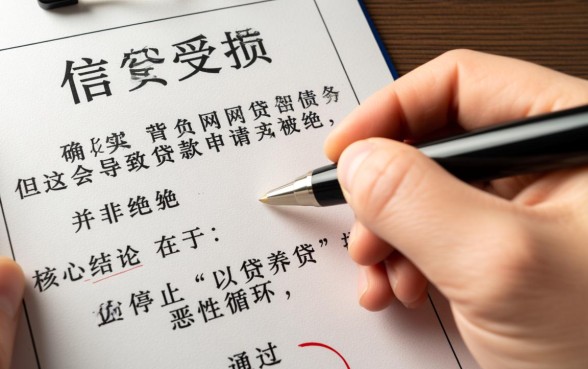 信受损
确实 背负网网贷债务
但这会导致贷款申请被绝，
并非绝
核心结论 在于：
停止“以贷养贷”
恶性循环，
通过